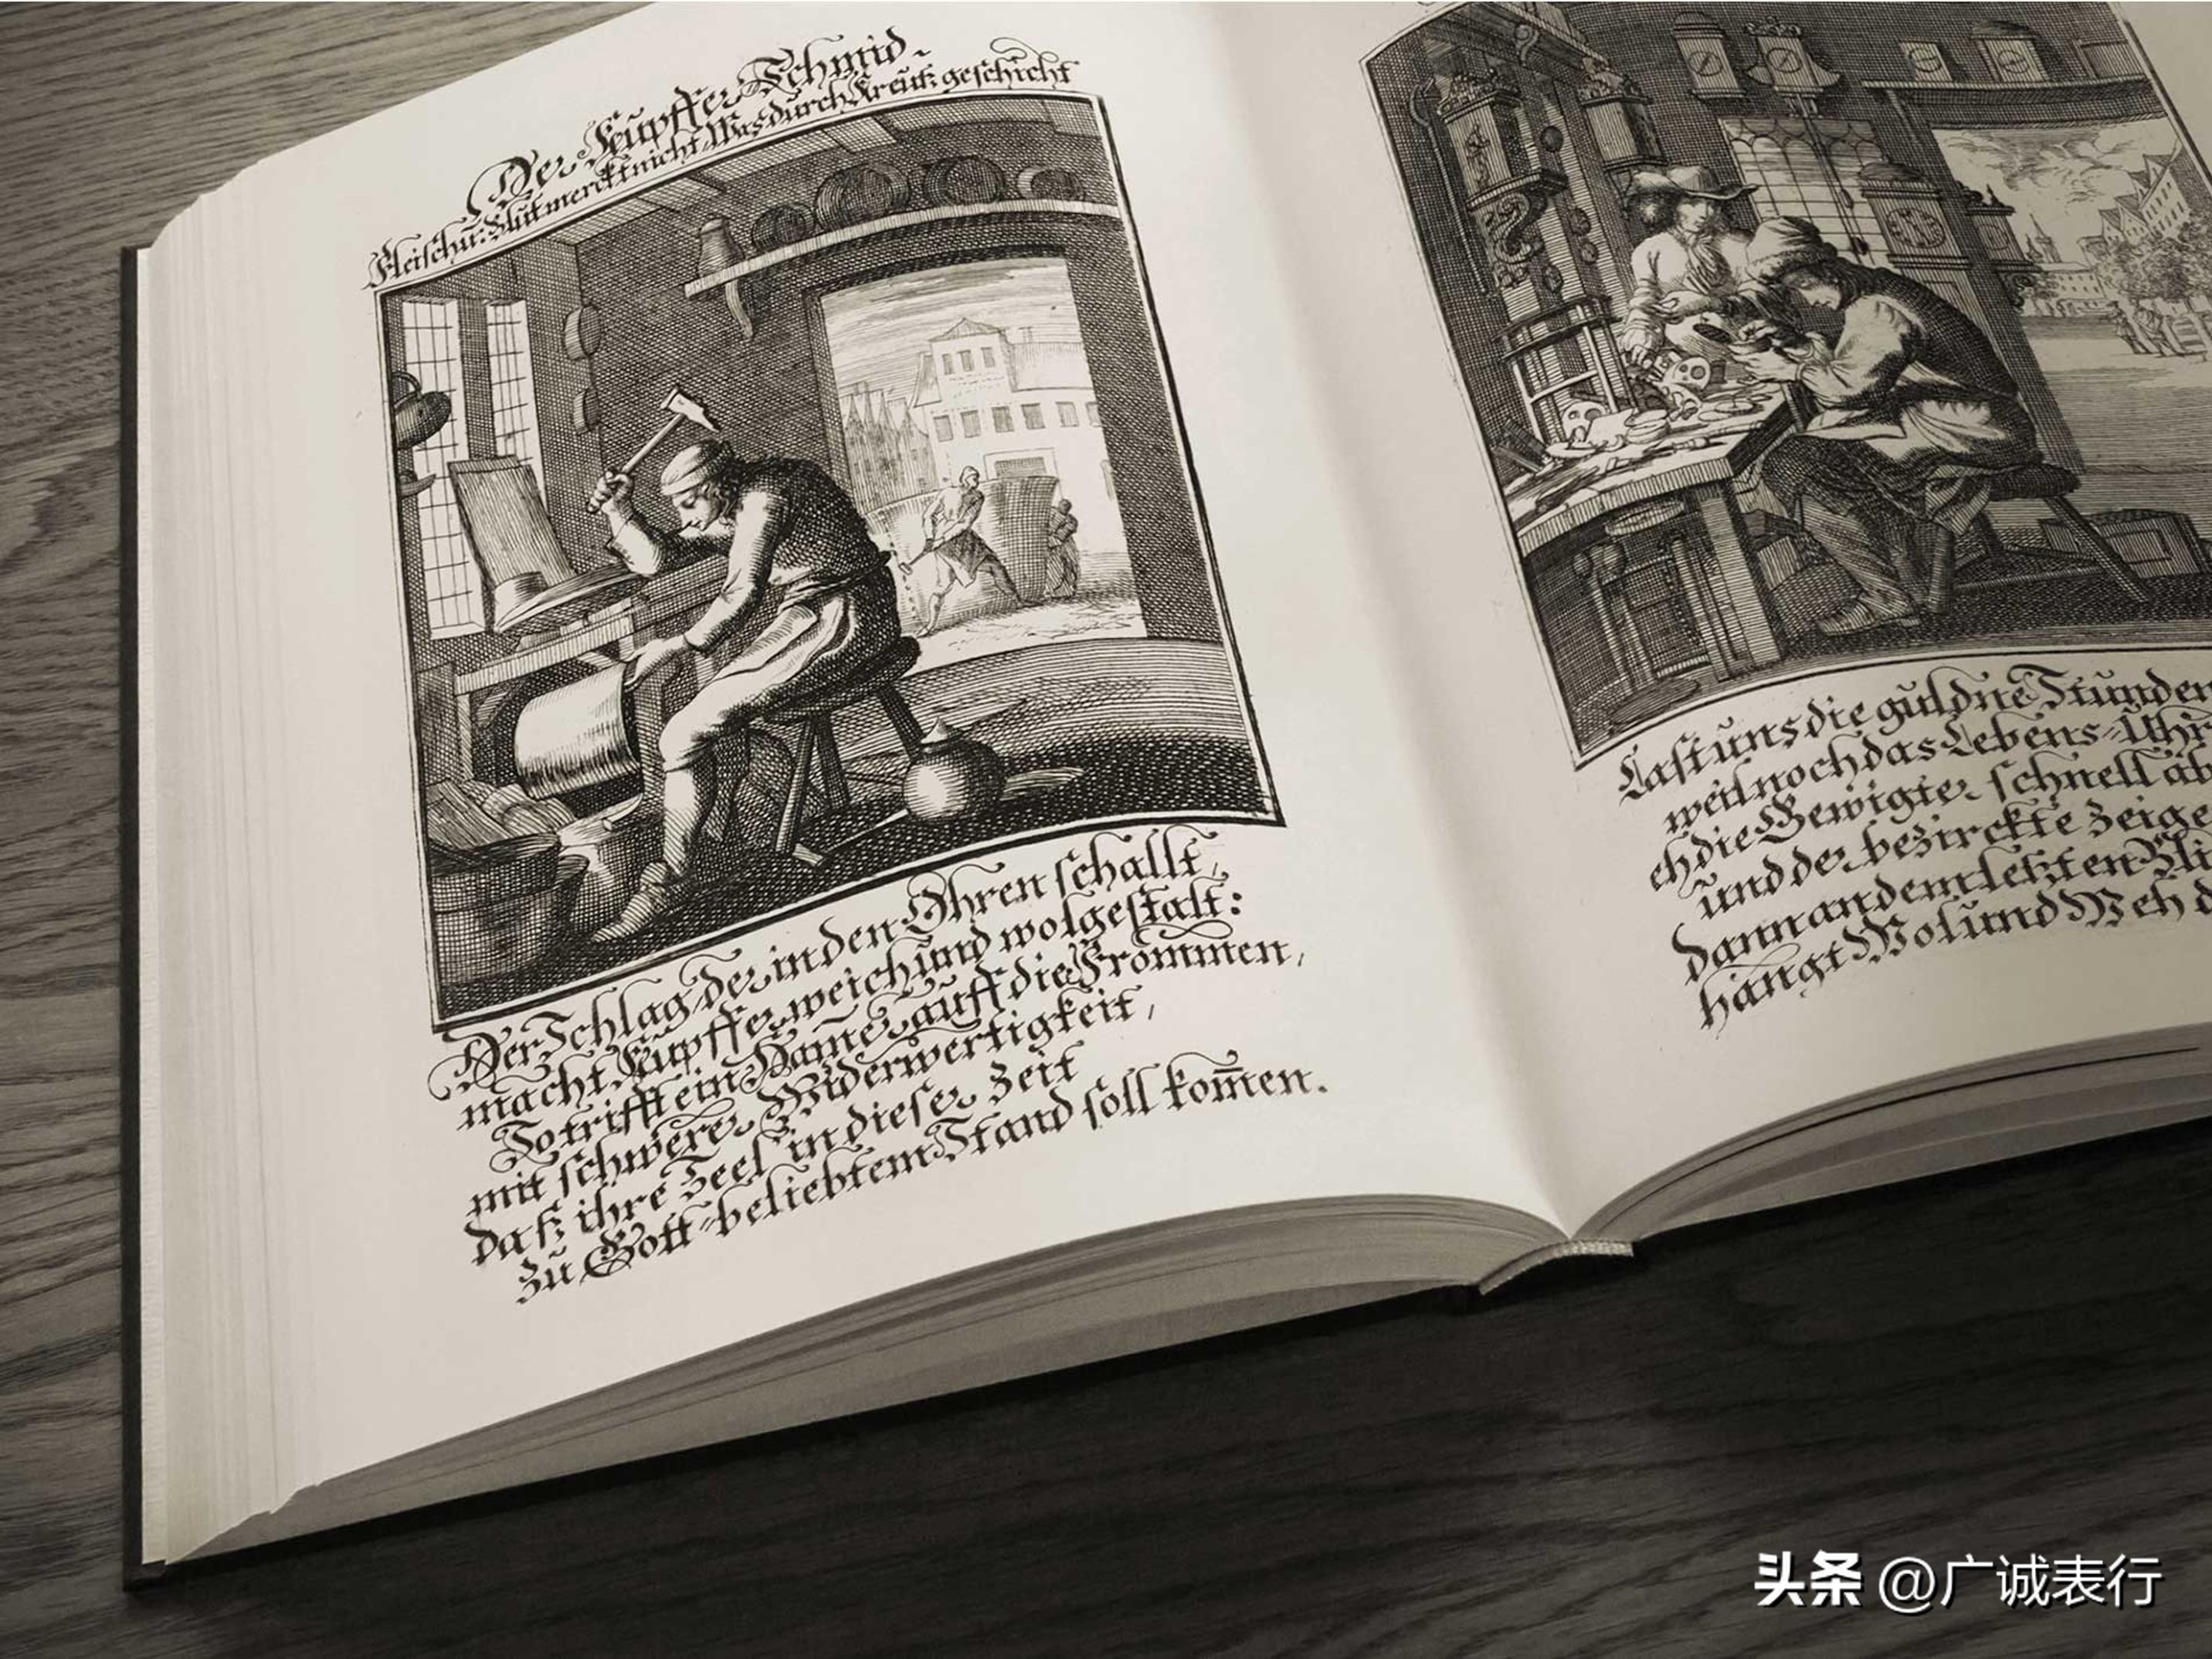 Der Kupffer Schmid.
Fleisch u: Blut merckt nicht, Was durch Kreutz geschicht
Der Schlag der in den Ohren schallt,
macht Kupffer weich und wolgestalt:
So trifft ein Hamer auff die Frommen,
mit schwerer Widerwertigkeit,
daß ihre Seel in dieser Zeit
zu Gott-beliebtem Stand soll kom̅en.
Last uns die guldne Stunden
weil noch das Lebens-Uhr
eh die Gewigter schnell ab
und der bezirckte Zeige
Dann an dem letzten Bli
hangt Wol und Weh d
头条 @广诚表行